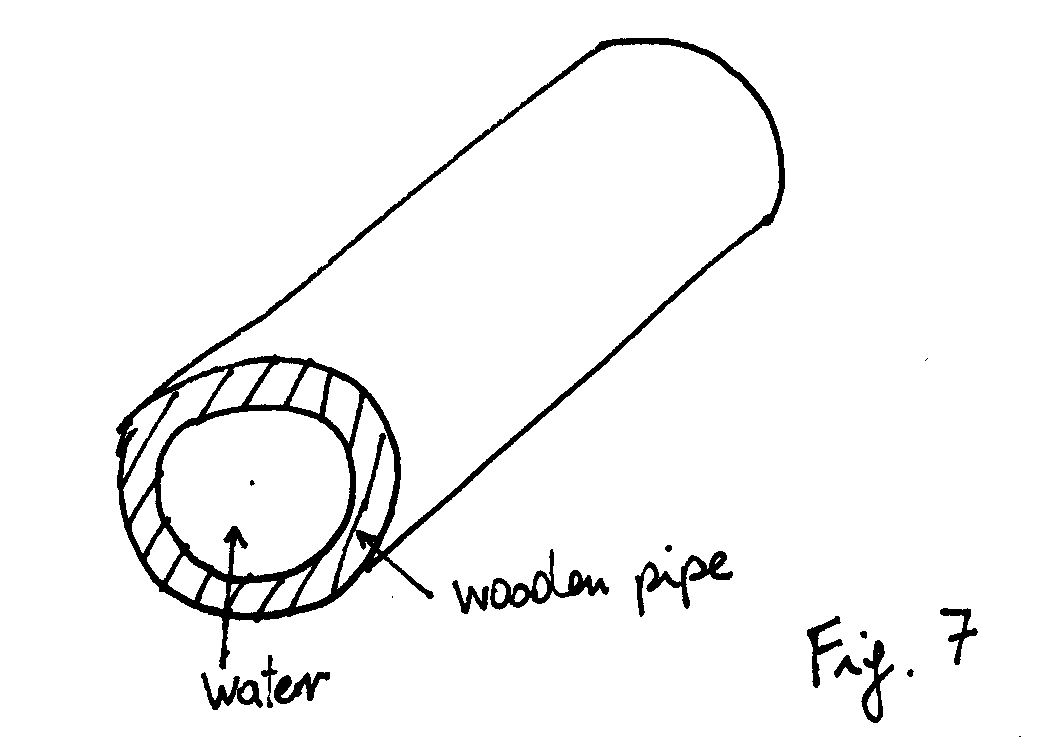 wooden pipe
water
Fig. 7